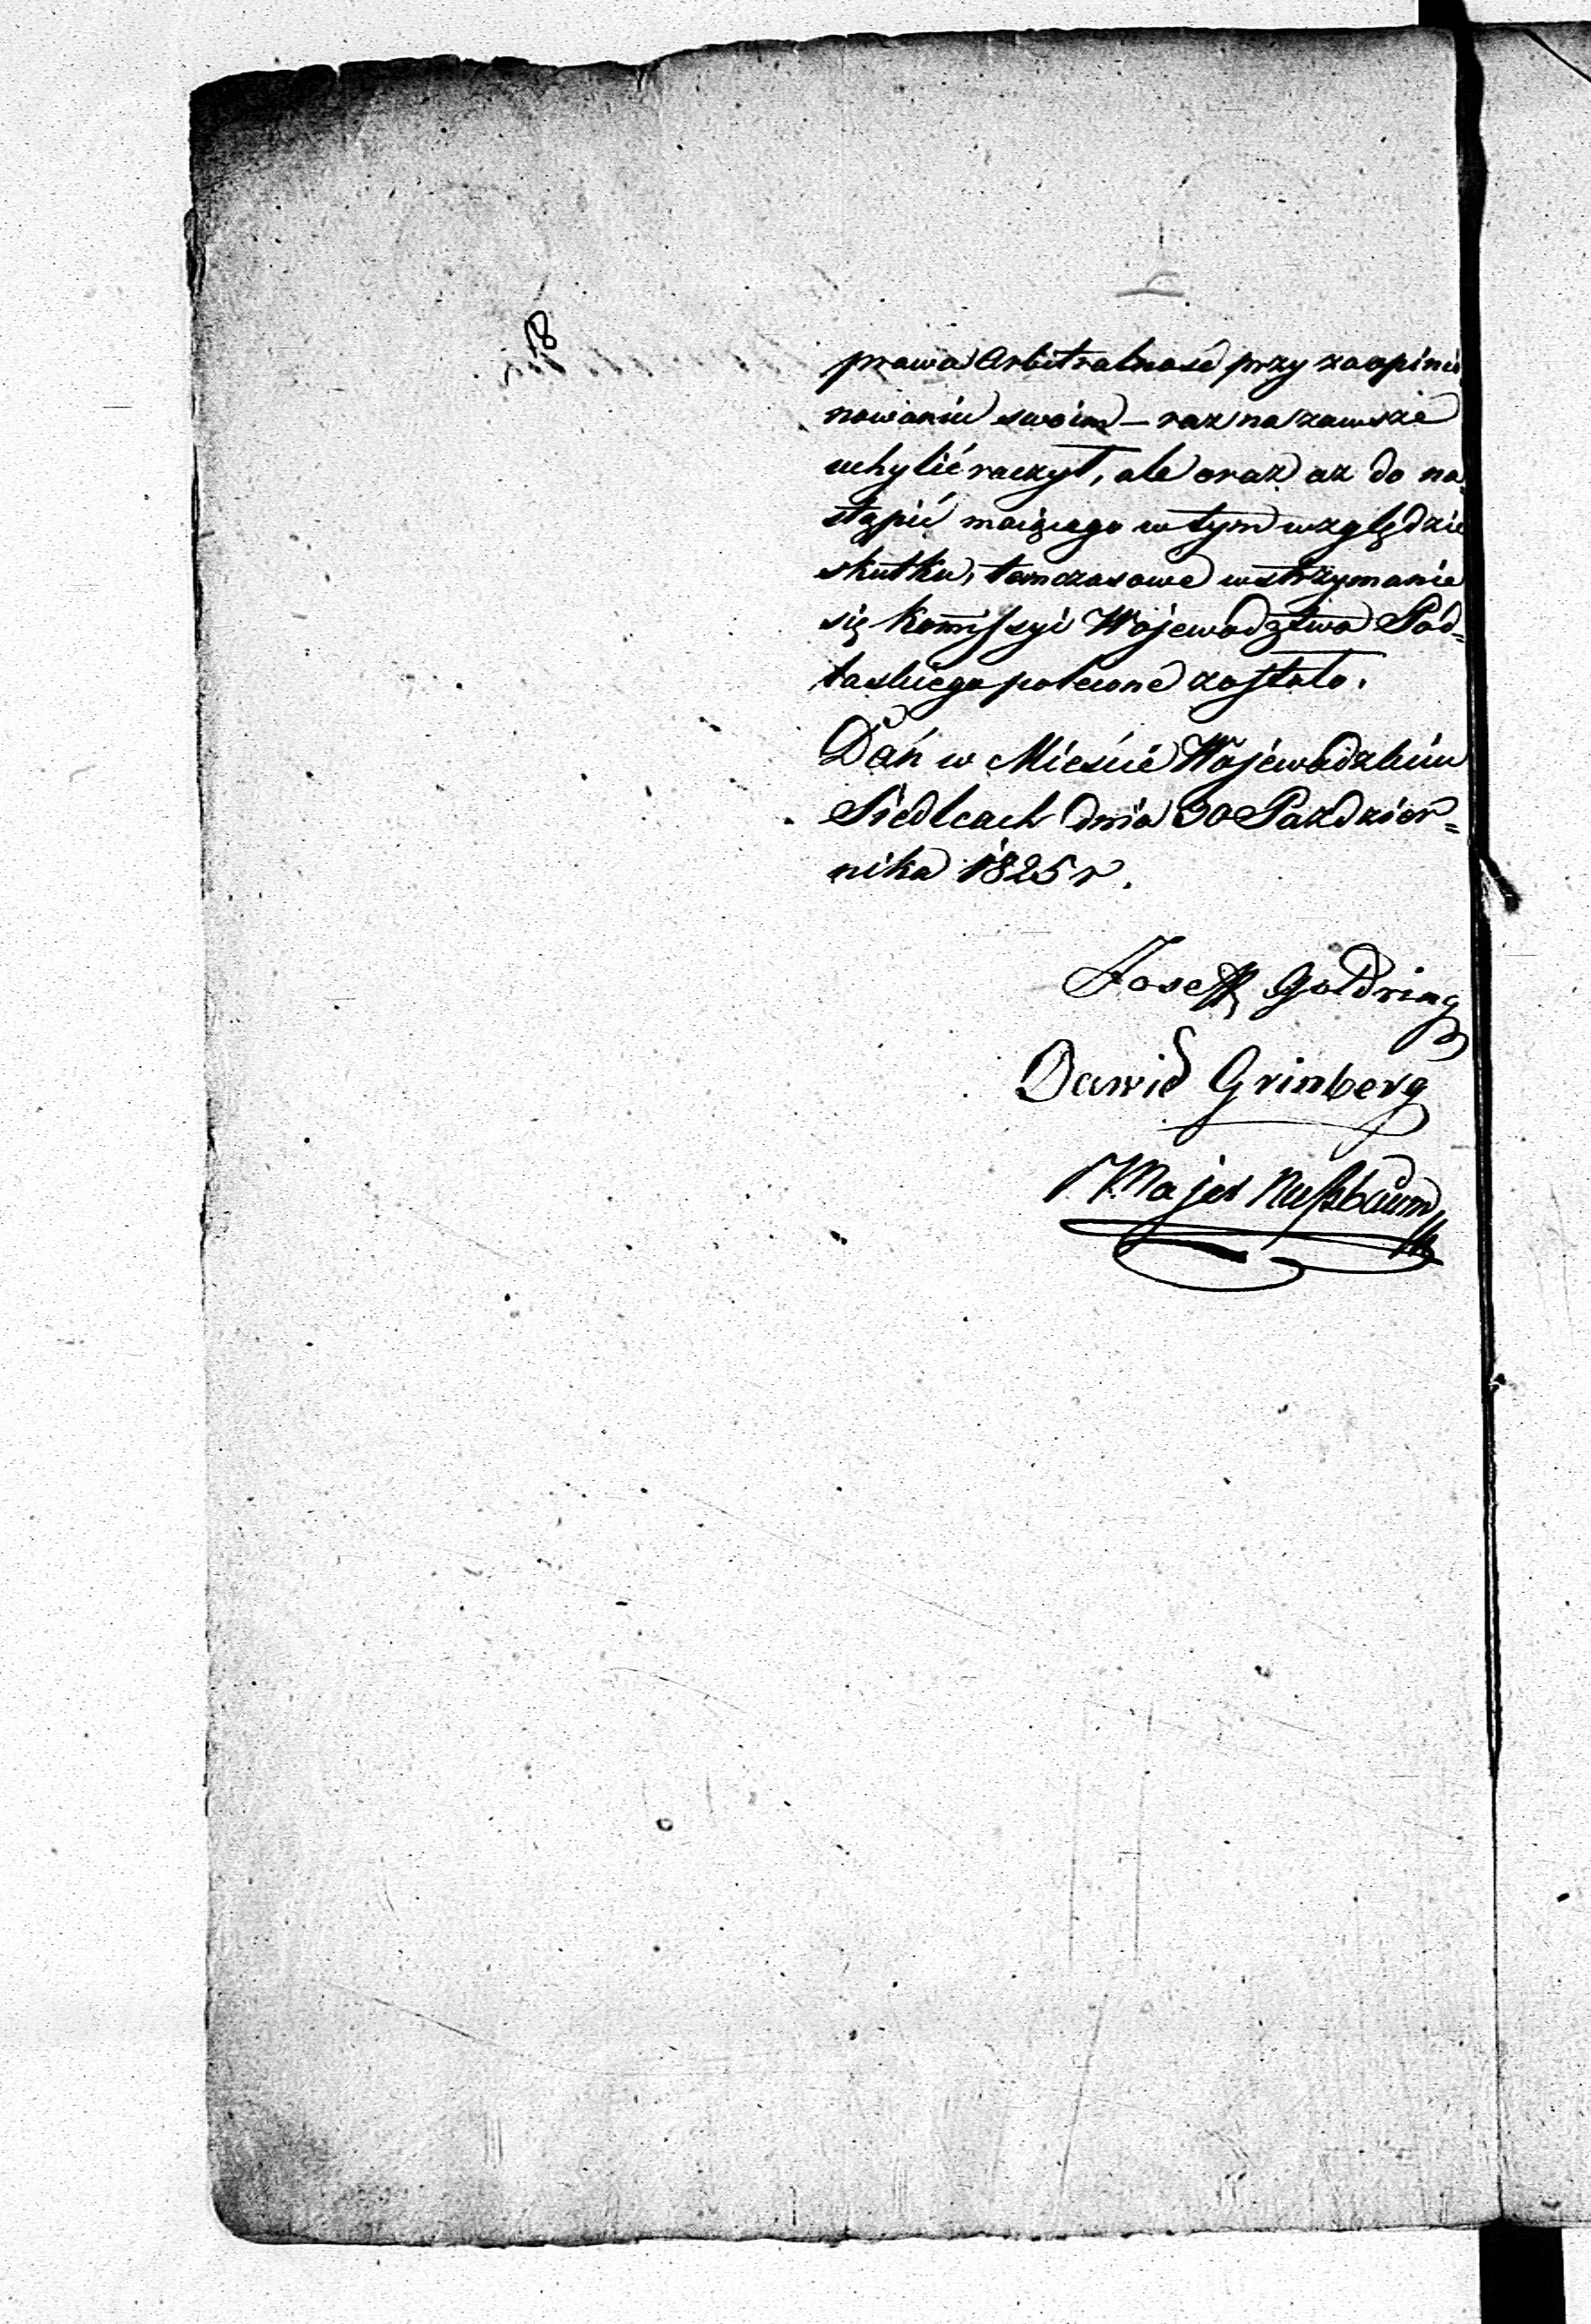 18
prawa Arbitralność przy zaopinio
nowaniu swoim – raz na zawsze
uchylić raczył, ale oraz az do na=
stąpić maiącego w tym względzie
skutku, temczasowe wstrzymanie
się Kommissyi Wojewodztwa Pod=
laskiego polecone zostało.
Dań w Mieście Wojewodzkim
Siedlcach dnia 30 Paździer=
nika 1825 r.
Joseff Goldring
Dawid Grinberg
Majer Nussbaum